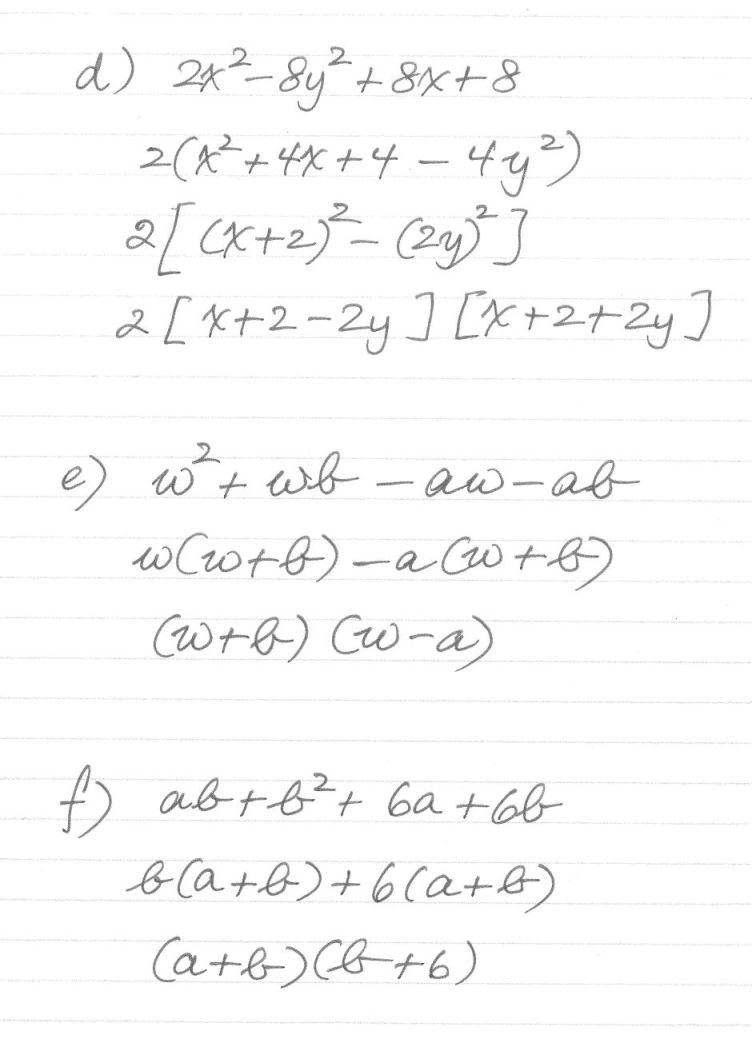 d) 2x²-8y²+8x+8
2(x²+4x+4-4y²)
2[(x+2)²-(2y)²]
2[x+2-2y][x+2+2y]
e) w²+wb-aw-ab
w(w+b)-a(w+b)
(w+b)(w-a)
f) ab+b²+6a+6b
b(a+b)+6(a+b)
(a+b)(b+6)